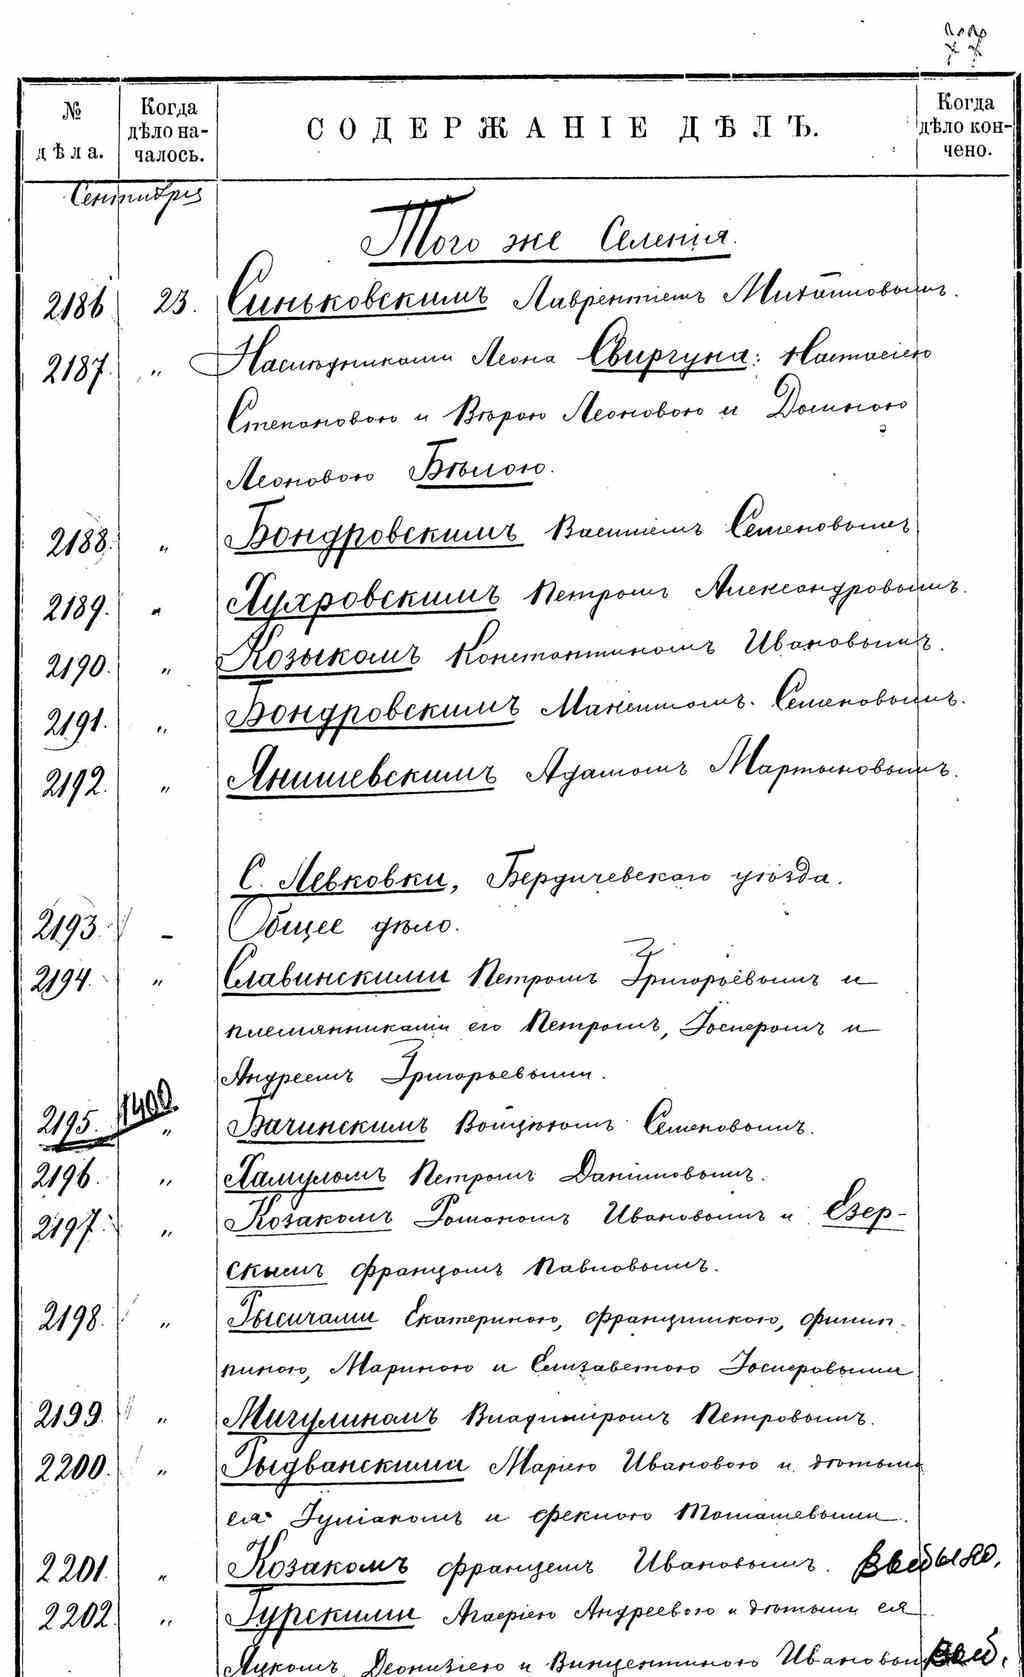 № дѣла.
Когда дѣло на-чалось.
СОДЕРЖАНІЕ ДѢЛЪ.
Когда дѣло кон-чено.
Сентября
Того же Селенія.
2186 23. Синьковскимъ Лаврентіемъ Михайловымъ.
2187. " Наслѣдниками Леона Свиргуна: Настасіею
Степановою и Вѣрою Леоновою и Доминою
Леоновою Бѣлою.
2188. " Бондровскимъ Василіемъ Семеновымъ
2189. " Хухровскимъ Петромъ Александровымъ.
2190. " Козыкомъ Константиномъ Ивановымъ.
2191. " Бондровскимъ Максимомъ Семеновымъ.
2192. " Янишевскимъ Адамомъ Мартыновымъ.
С. Левковки, Бердичевскаго уѣзда.
2193. – Общее дѣло.
2194. " Славинскими Петромъ Григорьевымъ и
племянниками его Петромъ, Іосифомъ и
Андреемъ Григорьевыми.
2195. 1400. " Бачинскимъ Войцѣхомъ Семеновымъ.
2196. " Хамуломъ Петромъ Даніиловымъ.
2197. " Козакомъ Романомъ Ивановымъ и Езер-
скымъ Францомъ Павловымъ.
2198. " Рысичами Екатериною, Францишкою, Филип-
пиною, Мариною и Елизаветою Іосифовыми
2199. " Мигулиномъ Владиміромъ Петровымъ.
2200. " Рыдванскими Маріею Ивановою и дѣтьми
ея Іуліаномъ и Феклою Томашевыми.
2201. " Козакомъ Францемъ Ивановымъ. Выбыло.
2202. " Гурскими Агафіею Андреевою и дѣтьми ея
Яцкомъ, Деонизіею и Винцентиною Ивановыми Выб.